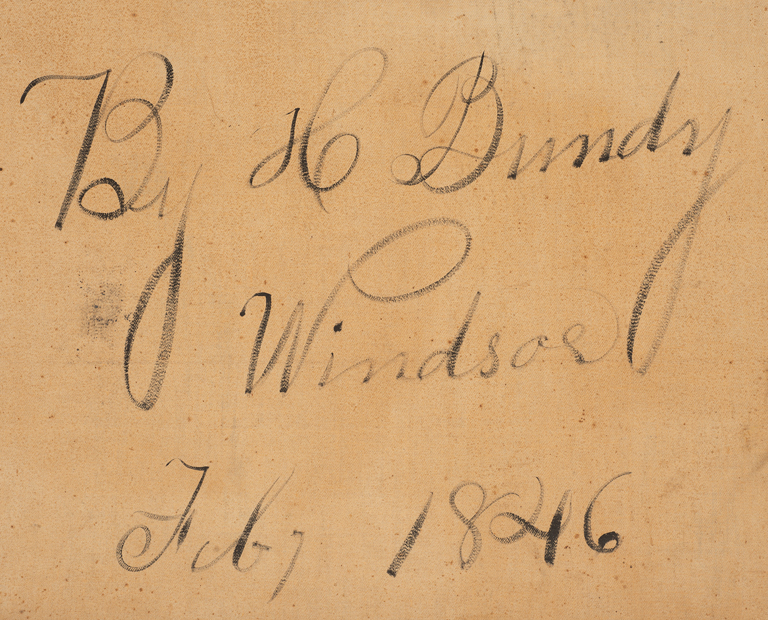 By H Bundy
Windsor
Feby 1846